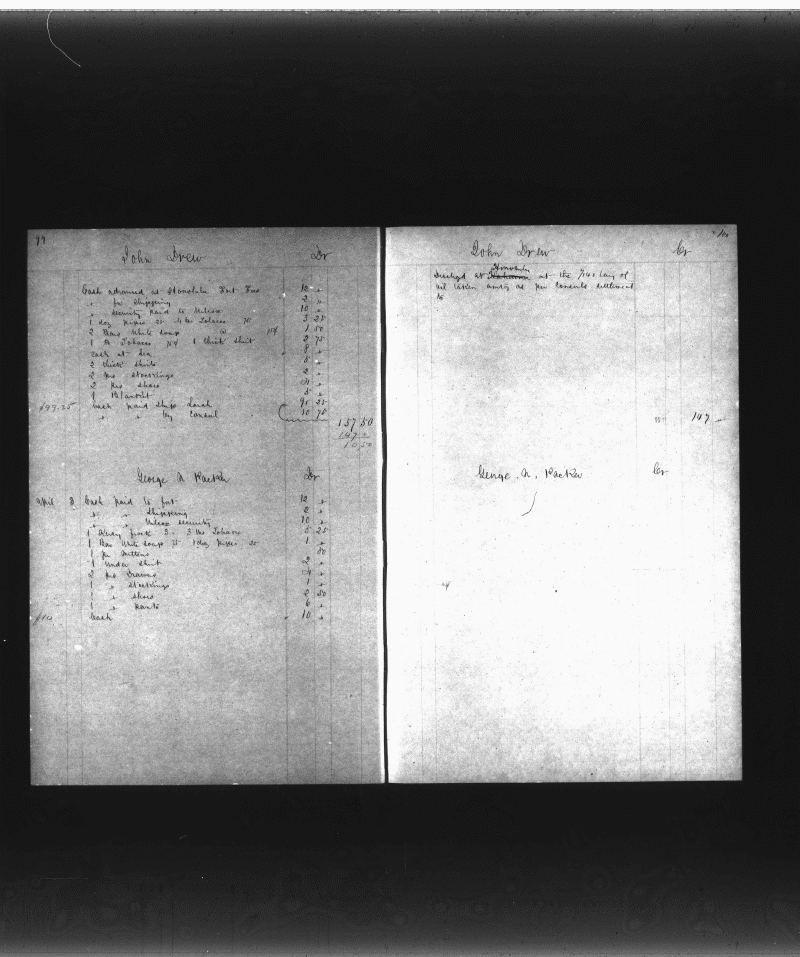 99
John Drew Dr
Cash advanced at Honolulu Fort Fees 12 "
" for Shipping 2 "
" Security paid to Wilcox 10 "
1 doz pipes 25 lbs Tobacco 3 25
2 Bars White Soap 1 50
1 lb Tobacco 1 thick Shirt 2 75
Cash at Sea 8 "
2 thick Shirts
2 prs Stockings 2 "
2 prs Shoes 4 "
1 Blanket
$99.25 Cash paid Ships 95 25
" " by Consul 10 75
157 50
147 "
10 50
George N Packer Dr
April 8 Cash paid to fort 12 "
" " Shipping 2 "
" " Wilcox Security 10 "
1 frock 3. 3 lbs Tobacco 5 25
1 Bar White Soap 75 1 doz pipes 25 1 "
1 pr Mittens 50
1 Under Shirt 2 "
2 prs Drawers 4 "
1 " Stockings 1 "
1 " Shoes 2 50
1 " Pants 6 "
$10 Cash 10 "
100
John Drew Cr
Honolulu
Dischgd at Lahaina at the 1/140 Lay of
oil taken as per Consuls settlement
to
147
George N. Packer Cr